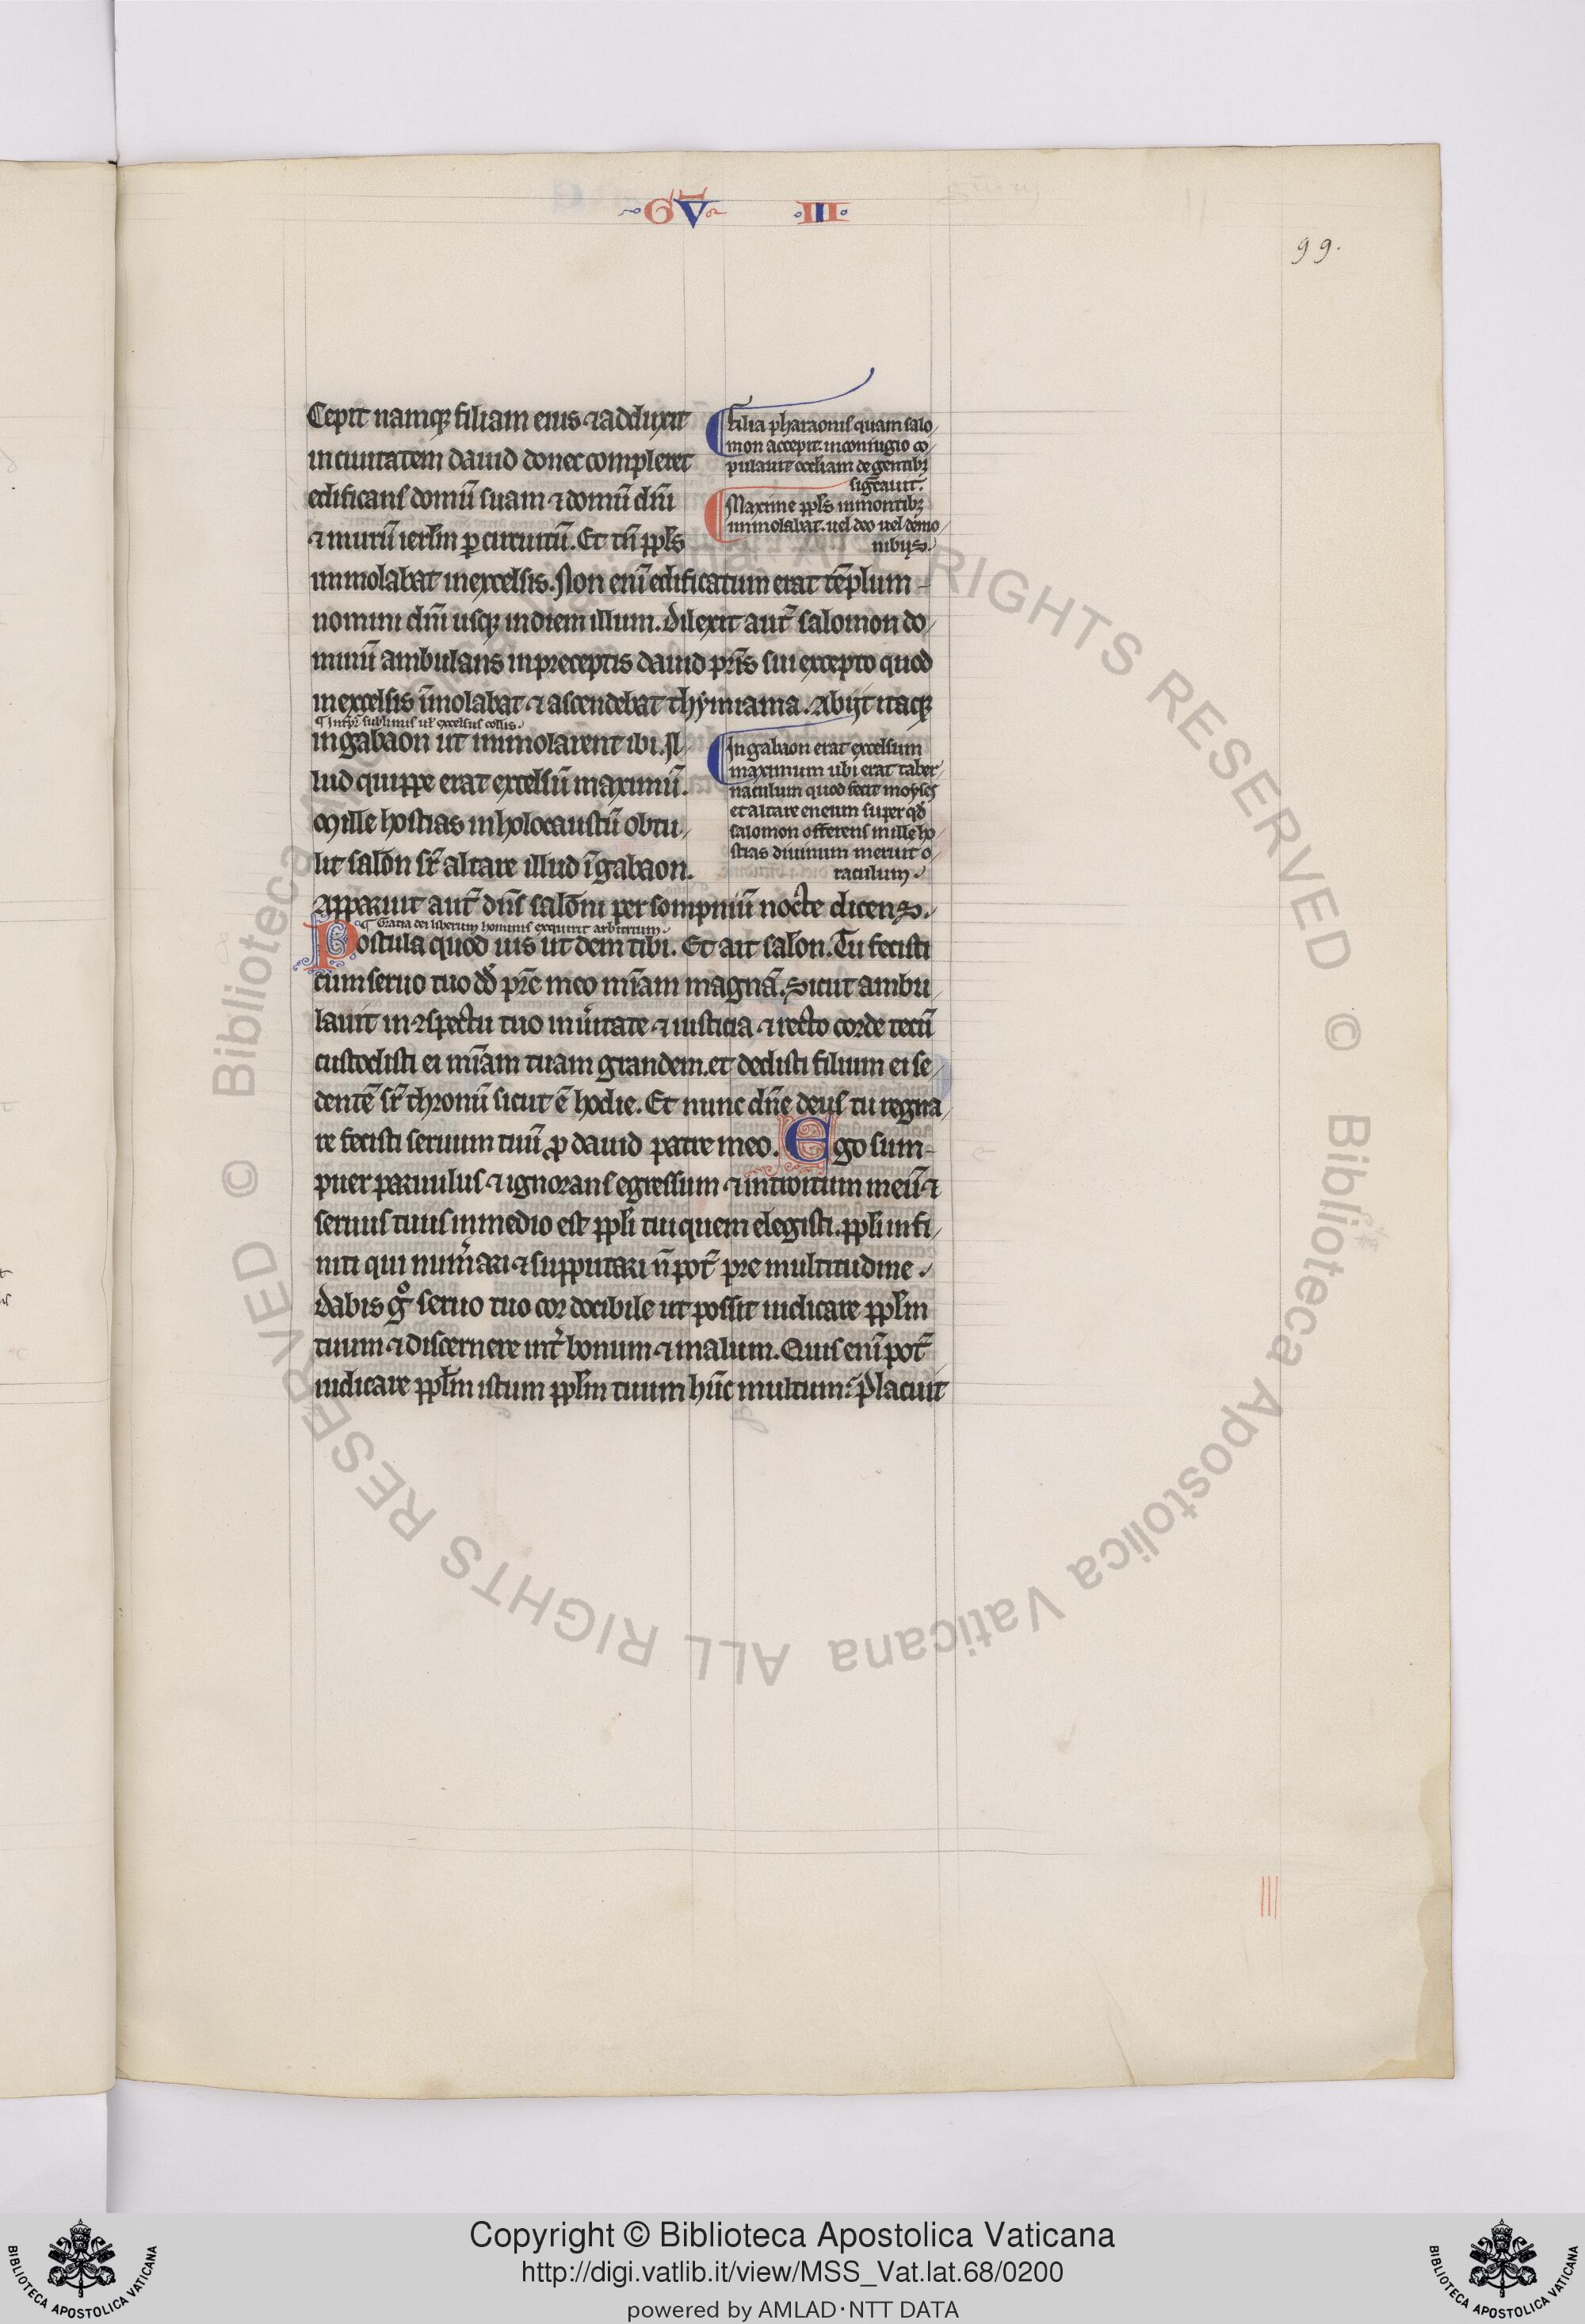 GV III
99.
Cepit namq; filiam eius ⁊ adduxit
in ciuitatem dauid donec compleret
edificans domū suam ⁊ domū dn̄i
⁊ murū ierl̄m ꝑ circuitū. Et tn̄ ppl̄s
immolabat in excelsis. Non eni̅ edificatum erat te̅plum
nomini dn̄i usq; in diem illum. Dilexit aut̄ salomon do
minū ambulans in preceptis dauid pr̄is sui excepto quod
in excelsis i̅molabat ⁊ ascendebat thymiama. Abijt itaq;
in gabaon ut immolarent ibi. Il
lud quippe erat excelsū maximū.
Mille hostias in holocaustū obtu
lit salōn sr̄ altare illud i̅ gabaon.
Apparuit aut̄ dn̄s salōni per sompniū nocte dicens.
¶ Gratia dei liberum hominis exquirit arbitrium.
Postula quod uis ut dem tibi. Et ait salōn. Tu fecisti
cum seruo tuo dd̄ pr̄e meo mi̅am magnā. Sicut ambu
lauit in ꝯspectu tuo in u̅itate ⁊ iusticia ⁊ recto corde tecū
custodisti ei mi̅am tuam grandem. et dedisti filium ei se
dente̅ sr̄ thronū sicut ē hodie. Et nunc dn̄e deus tu regna
re fecisti seruum tuū ꝓ dauid patre meo. Ego sum
puer paruulus ⁊ ignorans egressum ⁊ introitum meū ⁊
seruus tuus in medio est ppl̄i tui quem elegisti. ppl̄i infi
niti qui num̄ari ⁊ supputari n̄ pot̄ pre multitudine.
Dabis gͦ seruo tuo cor docibile ut possit iudicare ppl̄m
tuum ⁊ discernere int̄ bonum ⁊ malum. Quis eni̅ pot̄
iudicare ppl̄m istum ppl̄m tuum hūc multum? Placuit
Filia pharaonis quam salo
mon accepit. in coniugio co
pulauit eccl̄iam de gentib;
sigcauit.
Maxime ppl̄s in montib;
immolabat. uel deo uel demo
nibus.
In gabaon erat excelsum
maximum ubi erat taber
naculum quod fecit moyses
et altare eneum super qd̄
salomon offerens mille ho
stias diuinum meruit o
raculum.
III
© Biblioteca Apostolica Vaticana ALL RIGHTS RESERVED
© Biblioteca Apostolica Vaticana ALL RIGHTS RESERVED
Copyright © Biblioteca Apostolica Vaticana
http://digi.vatlib.it/view/MSS_Vat.lat.68/0200
powered by AMLAD·NTT DATA
BIBLIOTECA APOSTOLICA VATICANA
BIBLIOTECA APOSTOLICA VATICANA